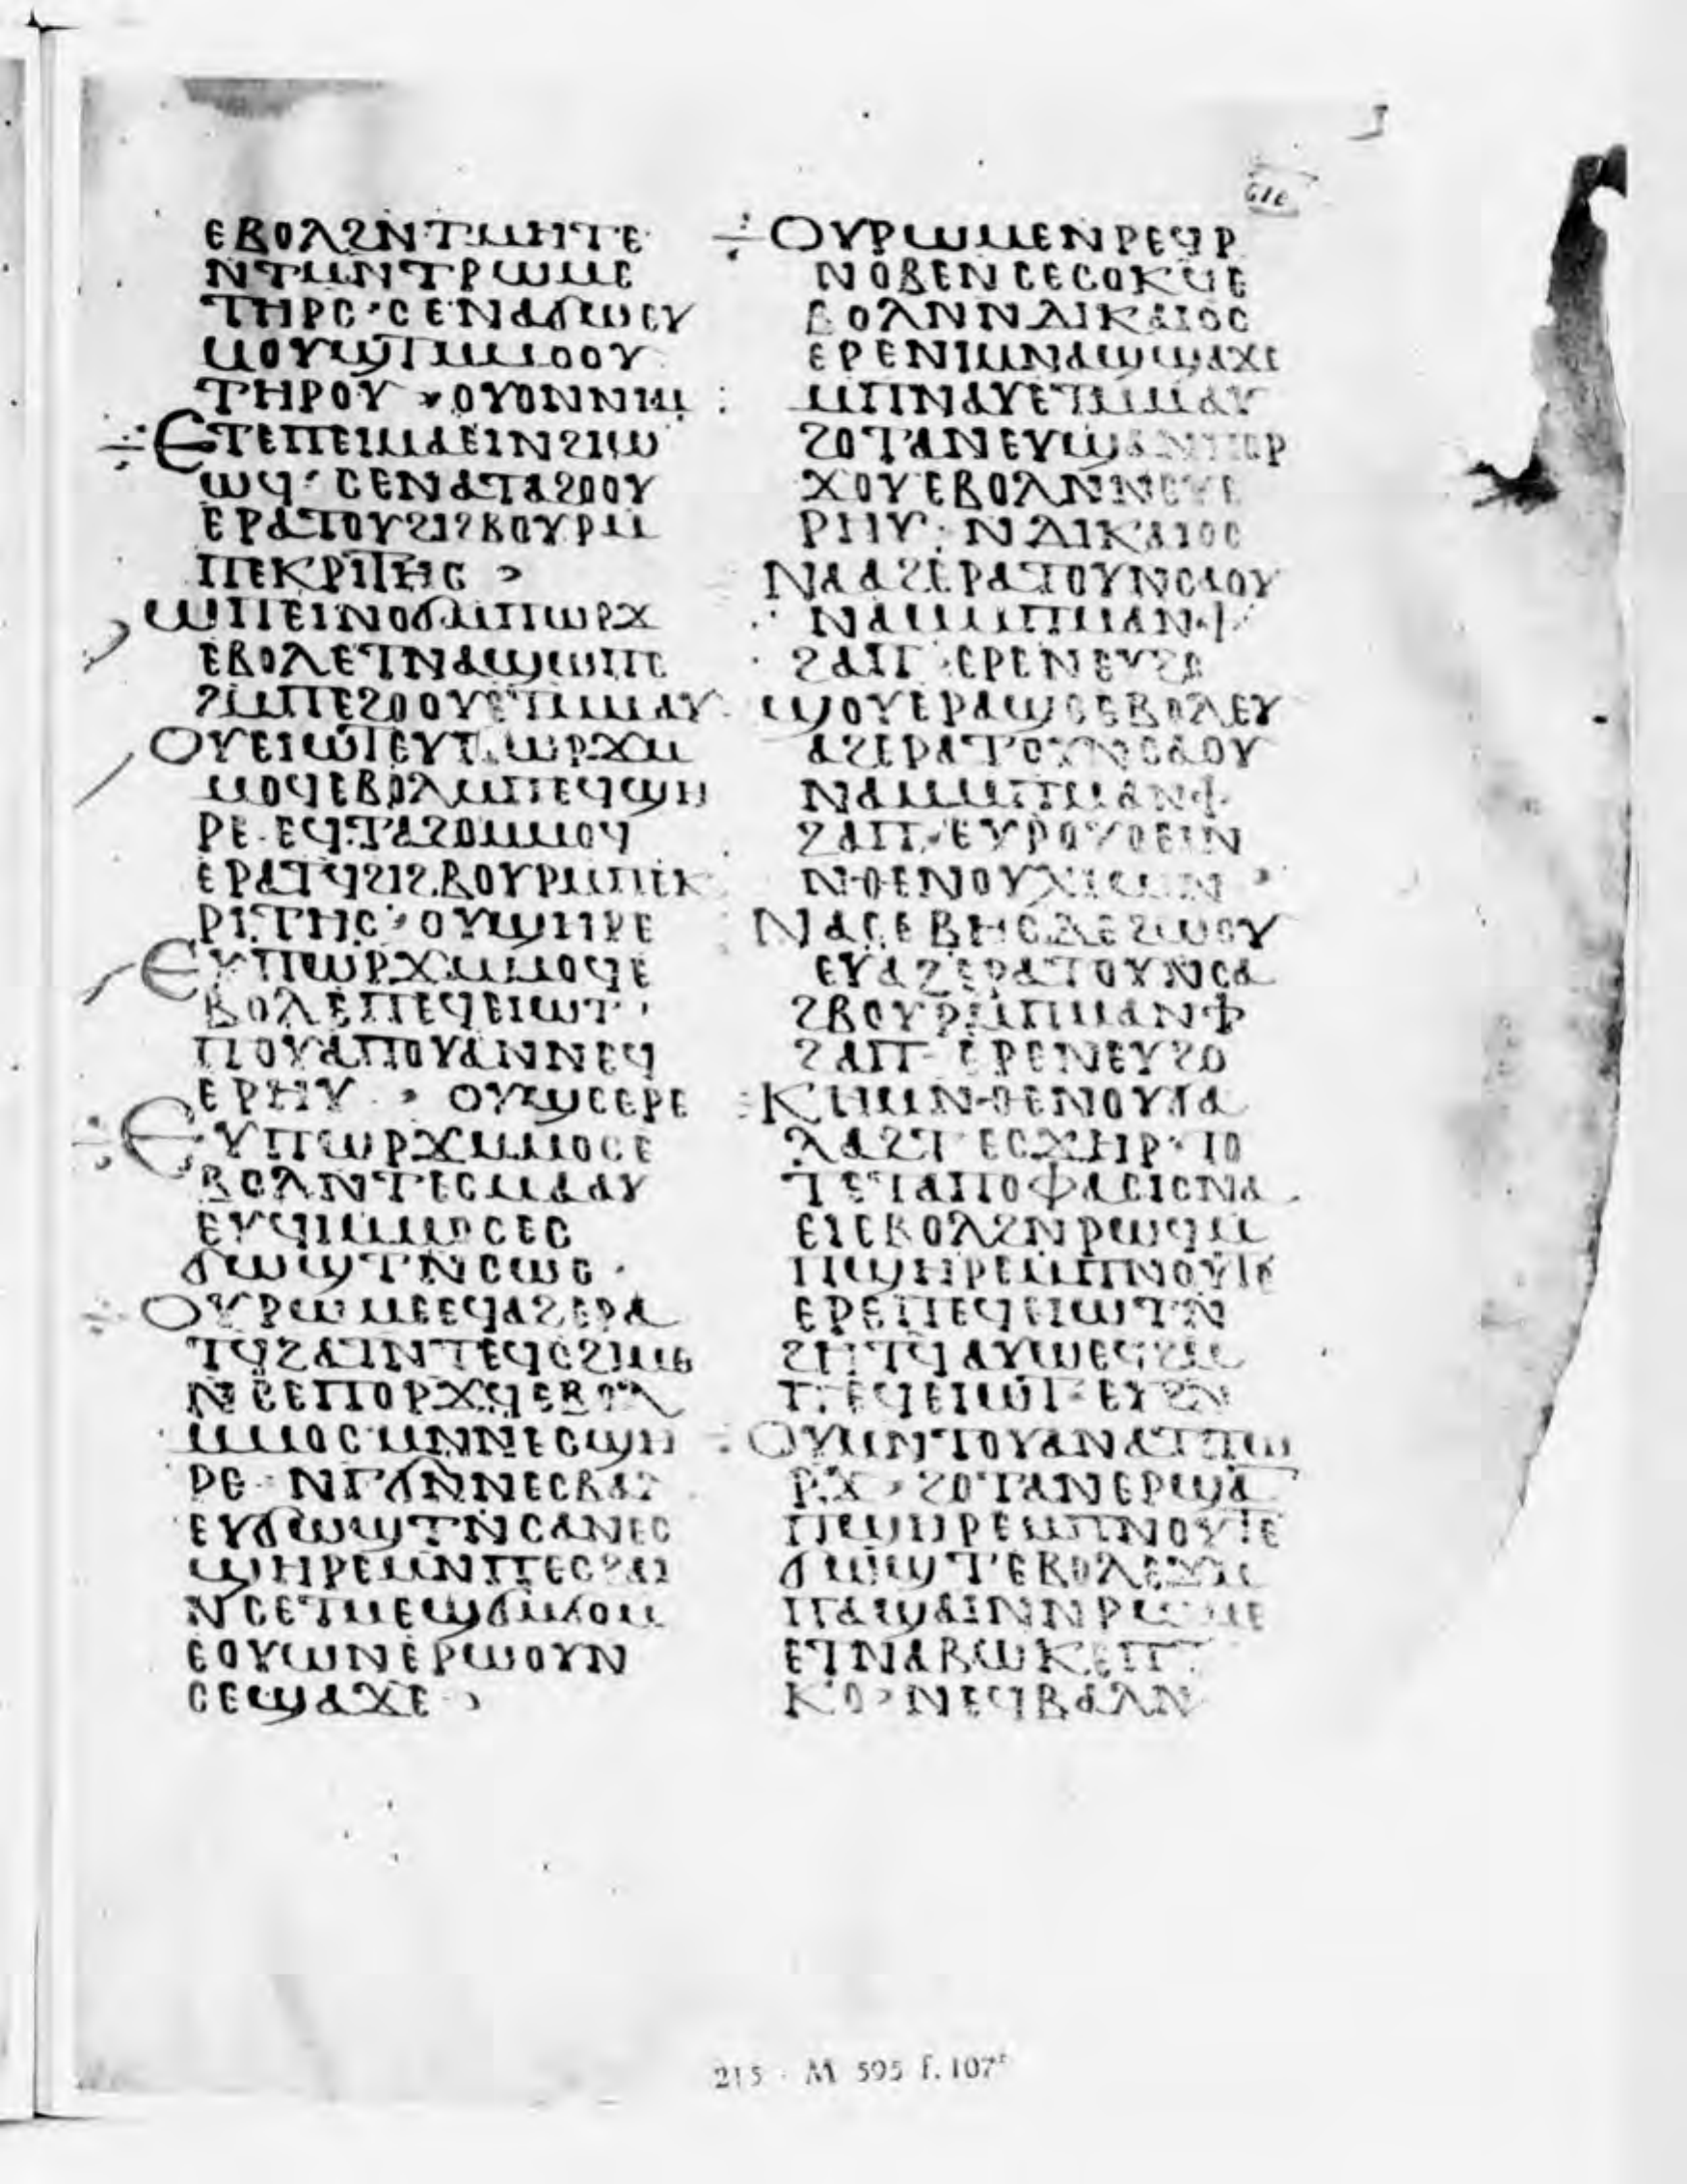 ⲉⲃⲟⲗϩⲛⲧⲙⲏⲧⲉ
ⲛⲧⲙⲛⲧⲣⲱⲙⲉ
ⲧⲏⲣⲥ· ⲥⲉⲛⲁϭⲱⲉⲩ
ⲙⲟⲩϣⲧⲙⲙⲟⲟⲩ
ⲧⲏⲣⲟⲩ· ⲟⲩⲟⲛⲛⲓⲙ
ⲉⲧⲉⲡⲉⲓⲙⲁⲉⲓⲛϩⲓⲱ
ⲱϥ· ⲥⲉⲛⲁⲧⲁϩⲟⲟⲩ
ⲉⲣⲁⲧⲟⲩϩⲓϩⲃⲟⲩⲣⲙ
ⲡⲉⲕⲣⲓⲧⲏⲥ ·
ⲱⲡⲉⲓⲛⲟϭⲙⲡⲱⲣϫ
ⲉⲃⲟⲗⲉⲧⲛⲁϣⲱⲡⲉ
ϩⲙⲡⲉϩⲟⲟⲩⲉⲧⲙⲙⲁⲩ·
ⲟⲩⲉⲓⲱⲧⲉⲩⲡⲱⲣϫⲙ
ⲙⲟϥⲉⲃⲟⲗⲙⲡⲉϥϣⲏ
ⲣⲉ· ⲉϥⲧⲁϩⲟⲙⲙⲟϥ
ⲉⲣⲁⲧϥϩⲓϩⲃⲟⲩⲣⲙⲡⲉⲕ
ⲣⲓⲧⲏⲥ· ⲟⲩϣⲏⲣⲉ
ⲉⲩⲡⲱⲣϫⲙⲙⲟϥⲉ
ⲃⲟⲗⲉⲡⲉϥⲉⲓⲱⲧ·
ⲡⲟⲩⲁⲡⲟⲩⲁⲛⲛⲉϥ
ⲉⲣⲏⲩ · ⲟⲩϣⲉⲉⲣⲉ
ⲉⲩⲡⲱⲣϫⲙⲙⲟⲥⲉ
ⲃⲟⲗⲛⲧⲉⲥⲙⲁⲁⲩ
ⲉⲩϥⲓⲙⲙⲟⲥⲉⲥ
ϭⲱϣⲧⲛⲥⲱⲥ·
ⲟⲩⲣⲱⲙⲉⲉϥⲁϩⲉⲣⲁ
ⲧϥϩⲁⲧⲛⲧⲉϥⲥϩⲓⲙⲉ
ⲛⲥⲉⲡⲟⲣϫϥⲉⲃⲟⲗ
ⲙⲙⲟⲥⲙⲛⲛⲉⲥϣⲏ
ⲣⲉ· ⲛⲅϭⲛⲛⲉⲥⲃⲁⲗ
ⲉⲩϭⲱϣⲧⲛⲥⲁⲛⲉⲥ
ϣⲏⲣⲉⲙⲛⲡⲉⲥϩⲁⲓ
ⲛⲥⲉⲧⲙⲉϣϭⲙϭⲟⲙ
ⲉⲟⲩⲱⲛⲉⲣⲱⲟⲩⲛ
ⲥⲉϣⲁϫⲉ ·
ⲟⲩⲣⲱⲙⲉⲛⲣⲉϥⲣ
ⲛⲟⲃⲉⲛⲥⲉⲥⲟⲕϥⲉ
ⲃⲟⲗⲛⲛⲇⲓⲕⲁⲓⲟⲥ
ⲉⲣⲉⲛⲓⲙⲛⲁϣϣⲁϫⲉ
ⲙⲡⲛⲁⲩⲉⲧⲙⲙⲁⲩ
ϩⲟⲧⲁⲛⲉⲩϣⲁⲛⲡⲟⲣ
ϫⲟⲩⲉⲃⲟⲗⲛⲛⲉⲩⲉ
ⲣⲏⲩ· ⲛⲇⲓⲕⲁⲓⲟⲥ
ⲛⲁⲁϩⲉⲣⲁⲧⲟⲩⲛⲥⲁⲟⲩ
ⲛⲁⲙⲙⲡⲙⲁⲛϯ
ϩⲁⲡ· ⲉⲣⲉⲛⲉⲩϩⲟ
ϣⲟⲩⲉⲣⲁϣⲉⲉⲃⲟⲗⲉⲩ
ⲁϩⲉⲣⲁⲧⲟⲩⲛⲥⲁⲟⲩ
ⲛⲁⲙⲙⲡⲙⲁⲛϯ
ϩⲁⲡ· ⲉⲩⲣⲟⲩⲟⲉⲓⲛ
ⲛⲑⲉⲛⲟⲩⲭⲓⲱⲛ ·
ⲛⲁⲥⲉⲃⲏⲥⲇⲉϩⲱⲟⲩ
ⲉⲩⲁϩⲉⲣⲁⲧⲟⲩⲛⲥⲁ
ϩⲃⲟⲩⲣⲙⲡⲙⲁⲛϯ
ϩⲁⲡ· ⲉⲣⲉⲛⲉⲩϩⲟ
ⲕⲏⲙⲛⲑⲉⲛⲟⲩϭⲁ
ⲗⲁϩⲧ ⲉⲥϫⲏⲣ· ⲧⲟ
ⲧⲉⲧⲁⲡⲟⲫⲁⲥⲓⲥⲛⲁ
ⲉⲓⲉⲃⲟⲗϩⲛⲣⲱϥⲙ
ⲡϣⲏⲣⲉⲙⲡⲛⲟⲩⲧⲉ
ⲉⲣⲉⲡⲉϥⲉⲓⲱⲧⲛ
ϩⲏⲧϥⲁⲩⲱⲉϥϩⲙ
ⲡⲉϥⲉⲓⲱⲧ· ⲉⲩϩⲛ
ⲟⲩⲙⲛⲧⲟⲩⲁⲛⲁⲧⲡⲱ
ⲣϫ· ϩⲟⲧⲁⲛⲉⲣϣⲁ
ⲡϣⲏⲣⲉⲙⲡⲛⲟⲩⲧⲉ
ϭⲱϣⲧⲉⲃⲟⲗⲉϫⲙ
ⲡⲁϣⲁⲓⲛⲛⲣⲱⲙⲉ
ⲉⲧⲛⲁⲃⲱⲕⲉⲡⲧ
ⲕⲟ· ⲛⲉϥⲃⲁⲗⲛ
215 · M 595 f. 107ʳ